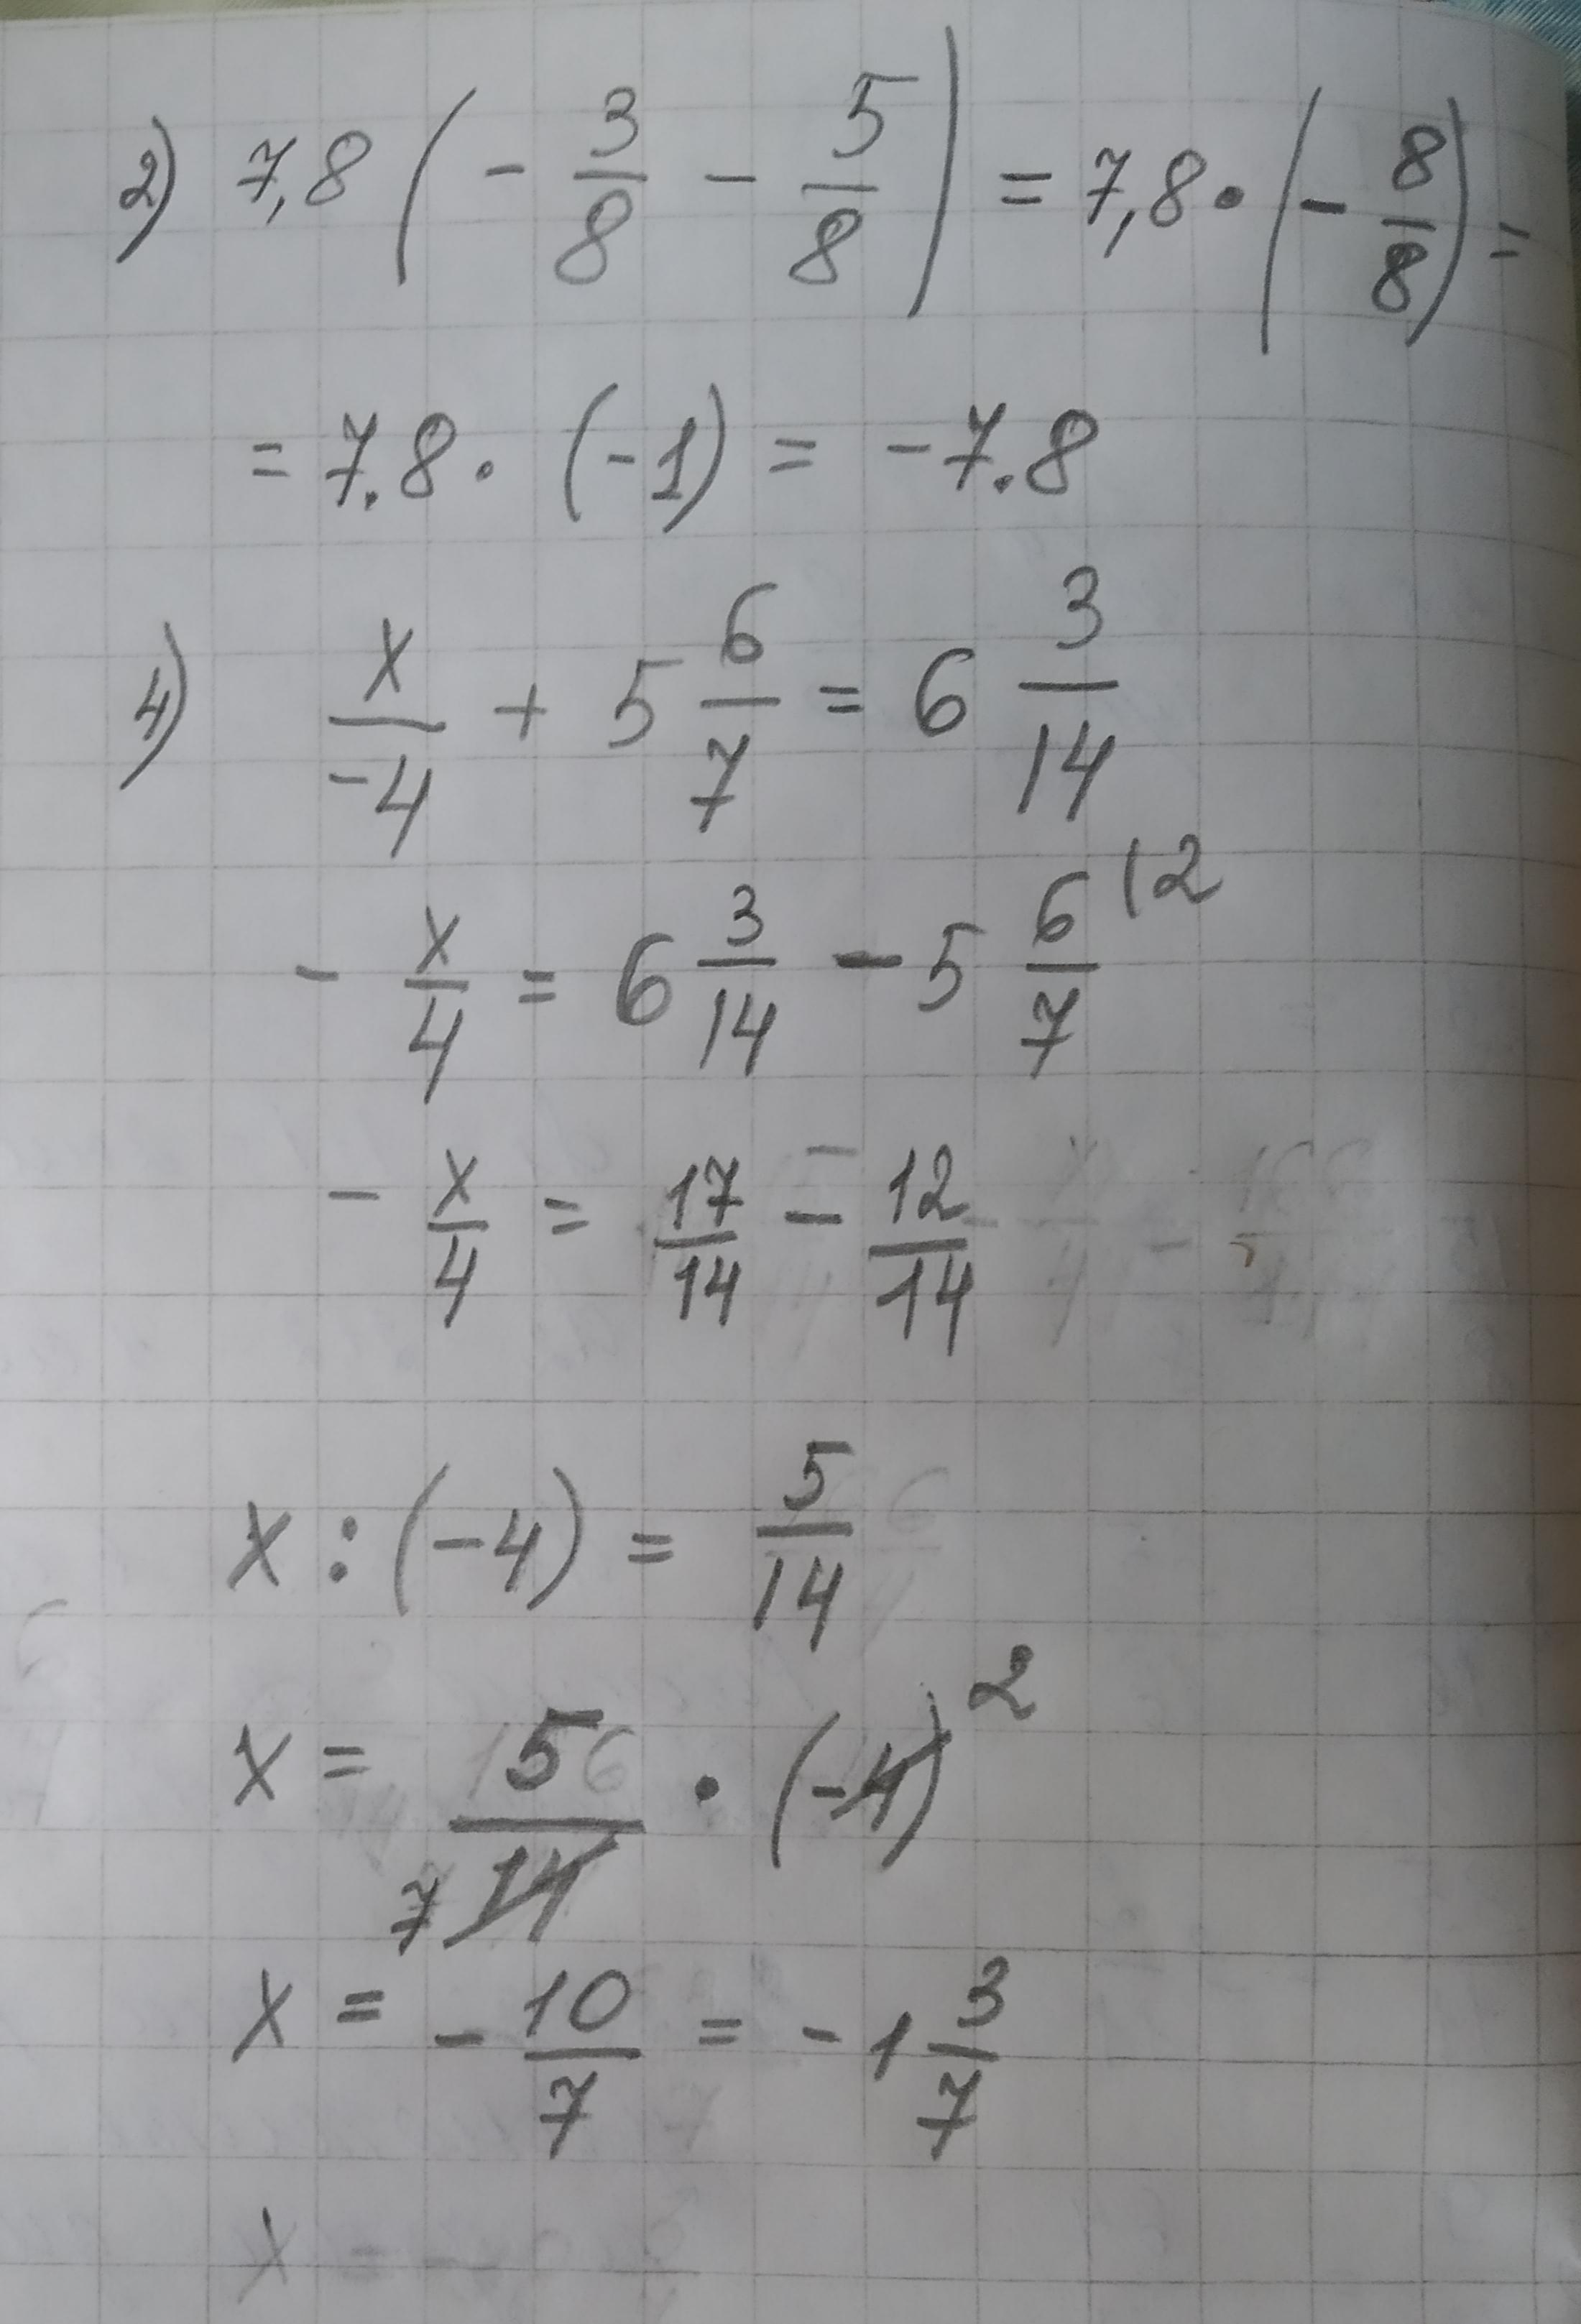 2) 7,8 (- 3/8 - 5/8) = 7,8 · (- 8/8) =
= 7.8 · (-1) = -7.8
4) x/-4 + 5 6/7 = 6 3/14
- x/4 = 6 3/14 - 5 6/7 |2
- x/4 = 17/14 - 12/14
x : (-4) = 5/14
x = 5/14 7 · (-4) 2
x = - 10/7 = -1 3/7